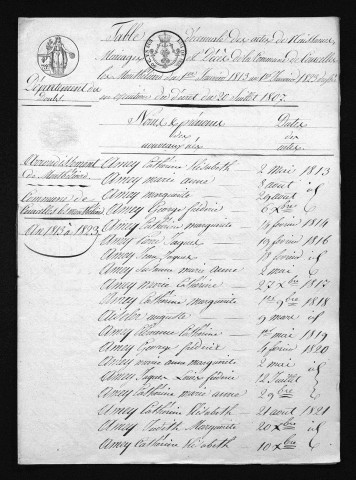 Table Décennale des actes de Naissances,
Mariages et Décès de la Commune de Courcelles
les Montbéliard du 1er Janvier 1813 au 1er Janvier 1823
en exécution du Décret du 20 Juillet 1807.
Département du
Doubs.
Arrondissement
de Montbéliard
Commune de
Courcelles les montbéliard
An 1813 à 1823
Noms & prénoms
des
nouveaux nés
Dates
des
actes.
Amey Catherine Elisabeth — 2 mai 1813
Amey marie anne — 8 aout id
Amey marguerite — 29 avril id
Amey George fréderic — 6 Xbre id
Amey Catherine marguerite — 14 février 1814
Amey Jaques — 19 février 1816
Amey Jaques — 18 février id
Amey marie anne — 2 mai id
Amey Marie Catherine — 27 Xbre 1817
Amey Catherine marguerite — 1er 9bre 1818
auguste — 9 mars id
Amey Catherine — 1er mai 1819
Amey George fréderic — 14 février 1820
Amey marie anne marguerite — 2 mai id
Amey Jaques Louis fréderic — 12 Juillet id
Amey Catherine marie anne — 29 8bre id
Amey Catherine Elisabeth — 21 aout 1821
Amey Judith Marguerite — 20 Xbre id
Amey Catherine Elisabeth — 10 Xbre id